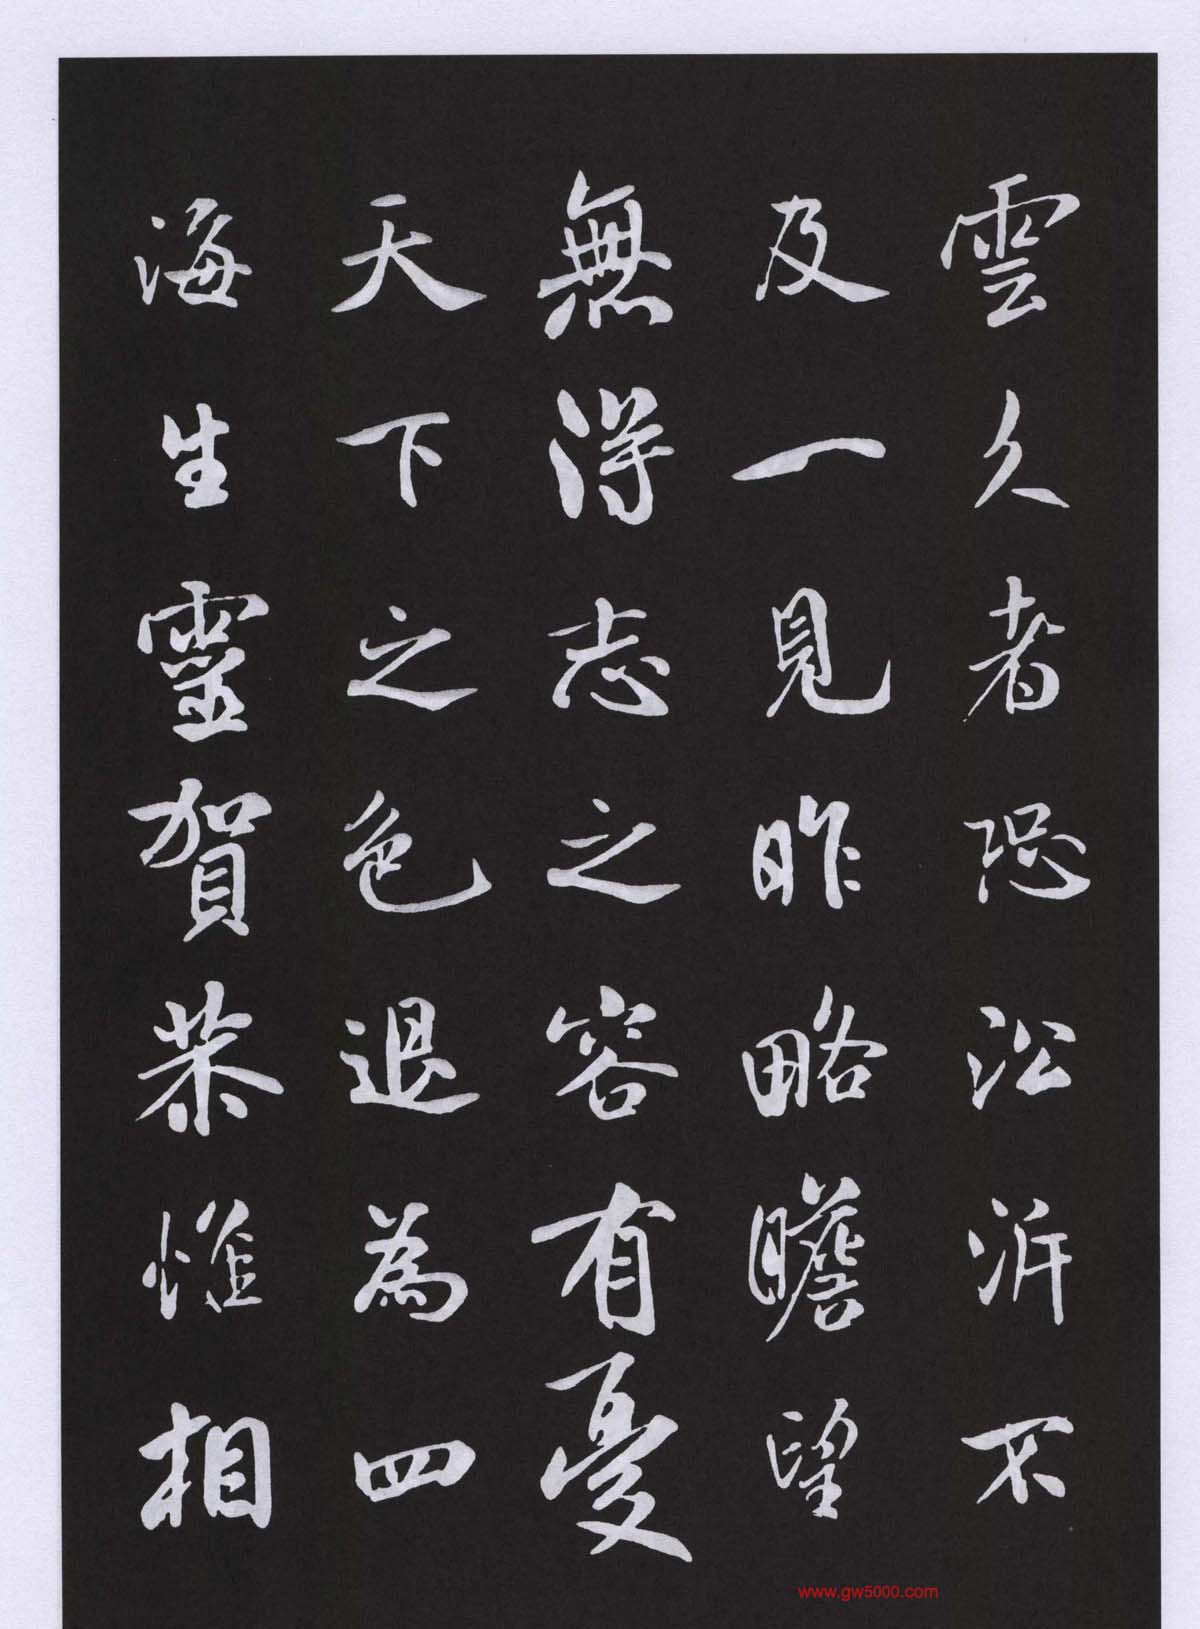 雲久者恐訟訴不
及一見昨略瞻望
無得志之容有憂
天下之色退為四
海生靈賀恭惟相
www.gw5000.com